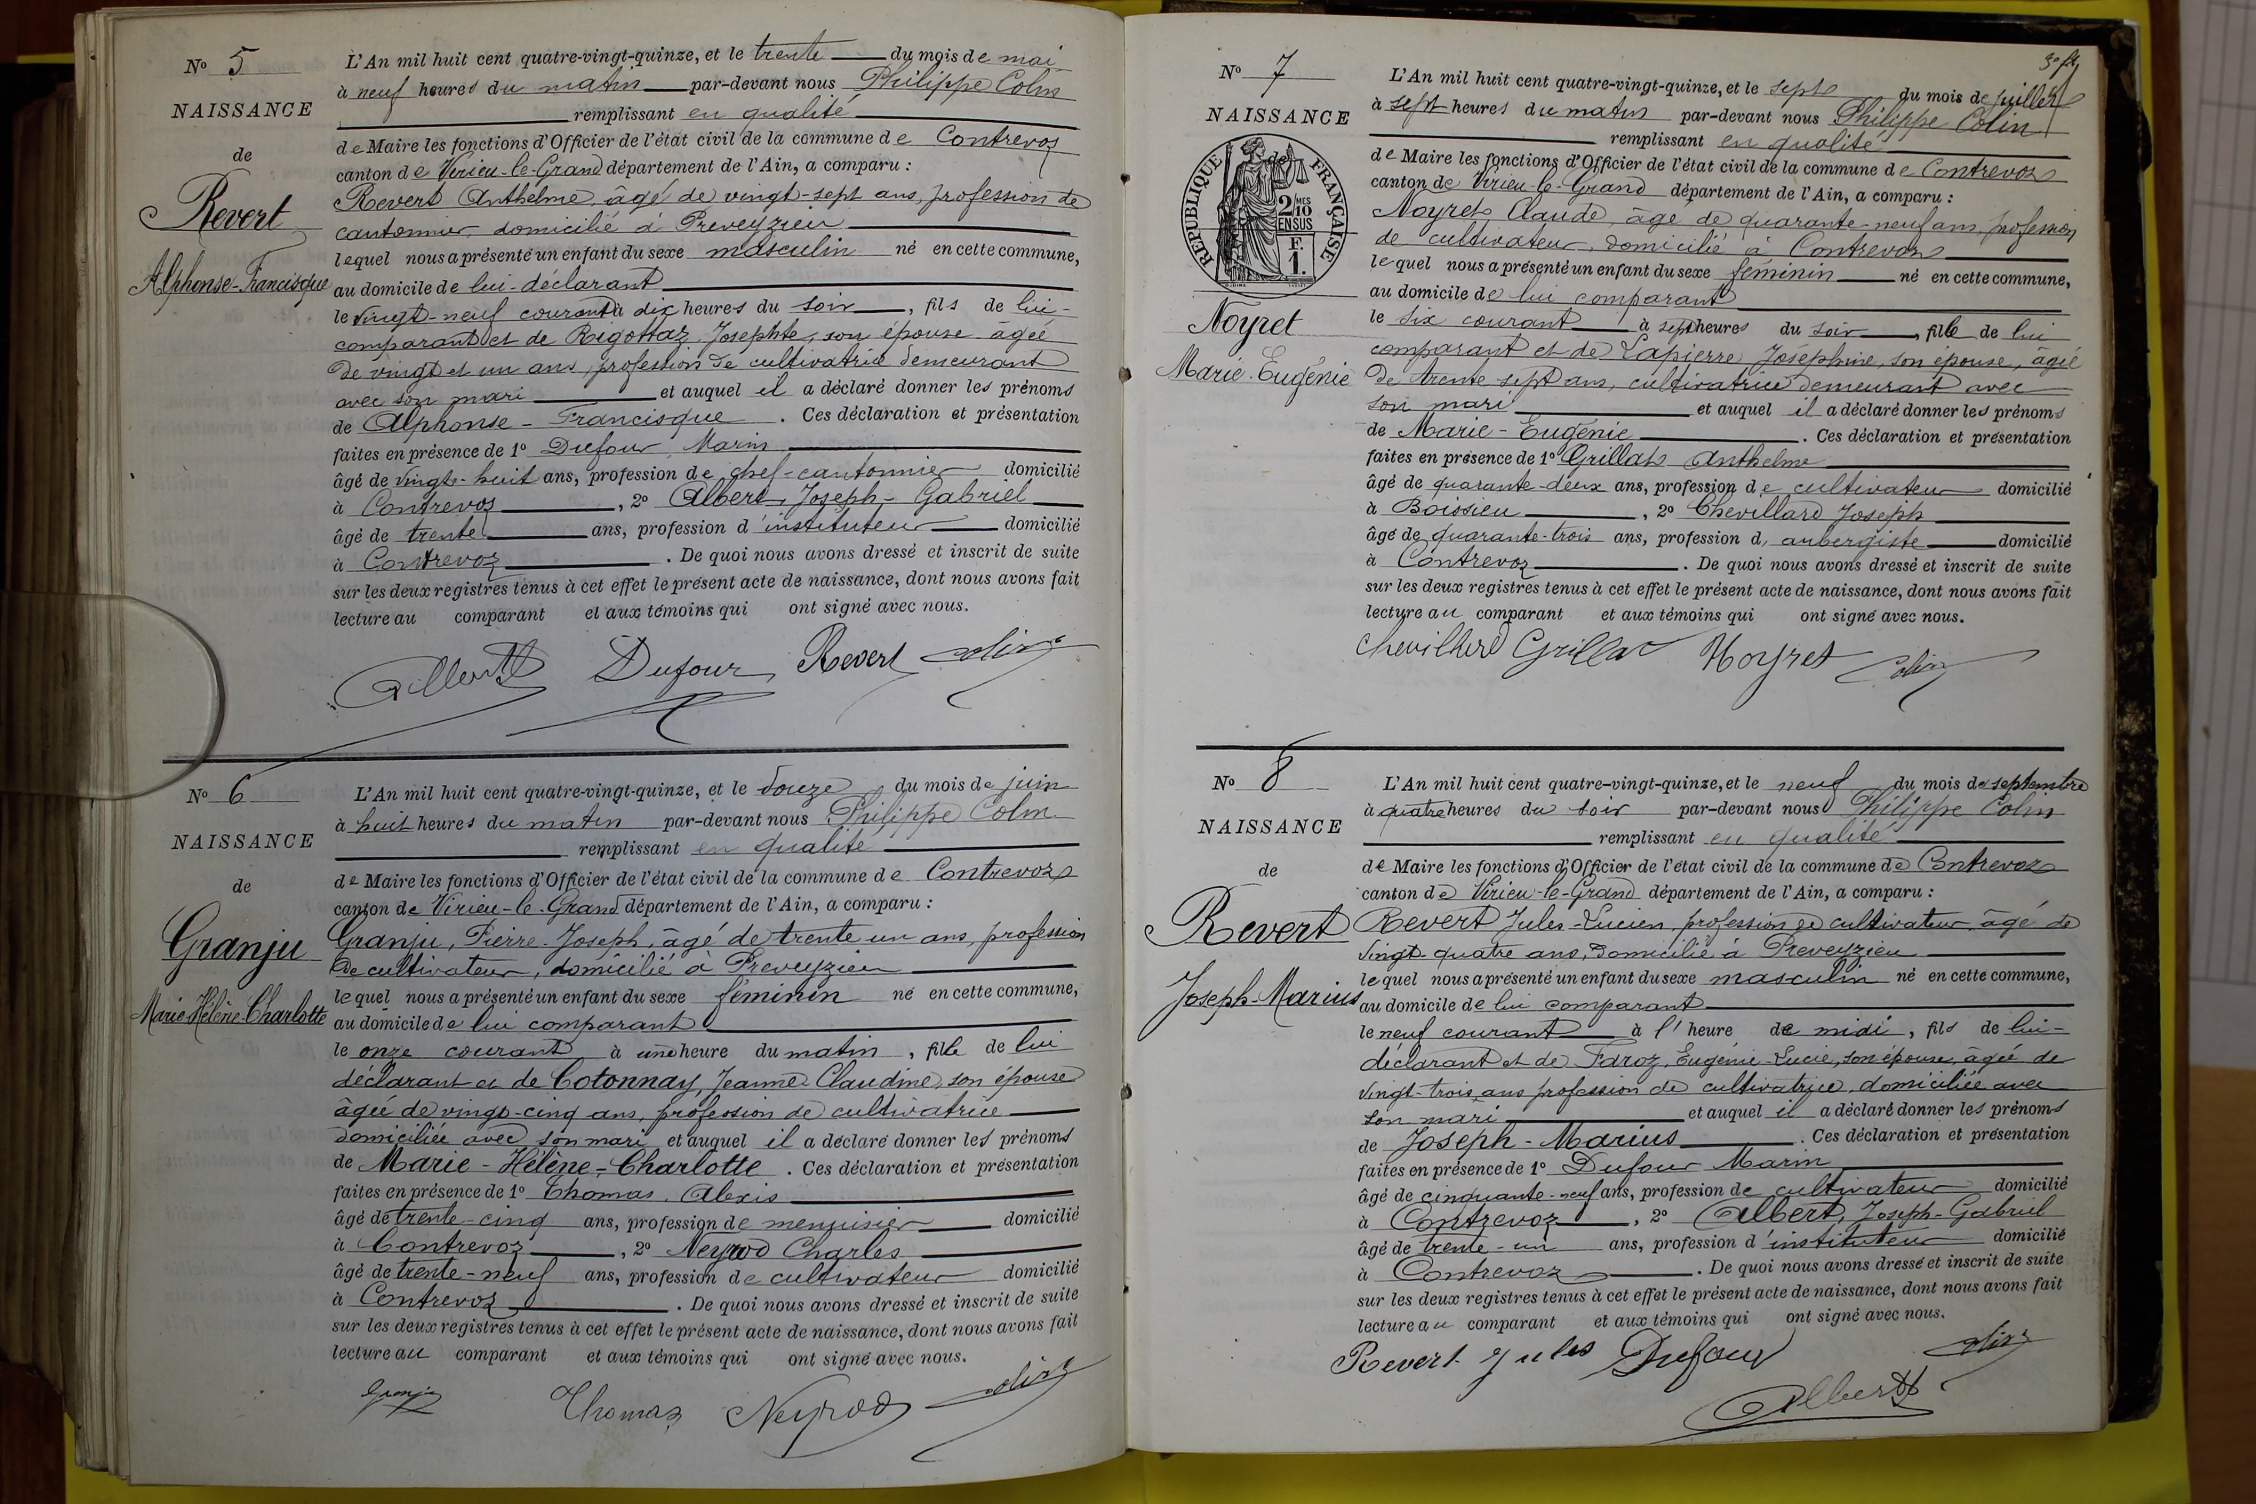 N° 5
NAISSANCE
de
Revert
Alphonse-Francisque
L'An mil huit cent quatre-vingt-quinze, et le trente du mois de mai
à neuf heures du matin par-devant nous Philippe Colin
remplissant en qualité
de Maire les fonctions d'Officier de l'état civil de la commune de Contrevoz
canton de Virieu-le-Grand département de l'Ain, a comparu :
Revert Anthelme, âgé de vingt-sept ans, profession de
cantonnier, domicilié à Preveyzieu
lequel nous a présenté un enfant du sexe masculin né en cette commune,
au domicile de lui-déclarant
le vingt-neuf courant à dix heures du soir, fils de lui-
comparant et de Rigottaz, Josephte, son épouse âgée
de vingt et un ans, profession de cultivatrice demeurant
avec son mari et auquel il a déclaré donner les prénoms
de Alphonse-Francisque. Ces déclaration et présentation
faites en présence de 1° Dufour, Marin
âgé de vingt-huit ans, profession de chef-cantonnier domicilié
à Contrevoz, 2° Albert, Joseph-Gabriel
âgé de trente ans, profession d'instituteur domicilié
à Contrevoz. De quoi nous avons dressé et inscrit de suite
sur les deux registres tenus à cet effet le présent acte de naissance, dont nous avons fait
lecture au comparant et aux témoins qui ont signé avec nous.
Albert Dufour Revert Colin
N° 6
NAISSANCE
de
Granju
Marie-Hélène-Charlotte
L'An mil huit cent quatre-vingt-quinze, et le douze du mois de juin
à huit heures du matin par-devant nous Philippe Colin
remplissant en qualité
de Maire les fonctions d'Officier de l'état civil de la commune de Contrevoz
canton de Virieu-le-Grand département de l'Ain, a comparu :
Granju, Pierre-Joseph, âgé de trente un ans, profession
de cultivateur, domicilié à Preveyzieu
lequel nous a présenté un enfant du sexe féminin né en cette commune,
au domicile de lui comparant
le onze courant à une heure du matin, fille de lui
déclarant et de Cotonnay, Jeanne-Claudine, son épouse
âgée de vingt-cinq ans, profession de cultivatrice
domiciliée avec son mari et auquel il a déclaré donner les prénoms
de Marie-Hélène-Charlotte. Ces déclaration et présentation
faites en présence de 1° Thomas, Alexis
âgé de trente-cinq ans, profession de menuisier domicilié
à Contrevoz, 2° Neyrod Charles
âgé de trente-neuf ans, profession de cultivateur domicilié
à Contrevoz. De quoi nous avons dressé et inscrit de suite
sur les deux registres tenus à cet effet le présent acte de naissance, dont nous avons fait
lecture au comparant et aux témoins qui ont signé avec nous.
Granju Thomas Neyrod Colin
N° 7
NAISSANCE
de
RÉPUBLIQUE FRANÇAISE
2 MES 10 EN SUS
F. 1.
Noyret
Marie-Eugénie
L'An mil huit cent quatre-vingt-quinze, et le sept du mois de juillet
à sept heures du matin par-devant nous Philippe Colin
remplissant en qualité
de Maire les fonctions d'Officier de l'état civil de la commune de Contrevoz
canton de Virieu-le-Grand département de l'Ain, a comparu :
Noyret, Claude, âgé de quarante-neuf ans, profession
de cultivateur, domicilié à Contrevoz
lequel nous a présenté un enfant du sexe féminin né en cette commune,
au domicile de lui comparant
le six courant à sept heures du soir, fille de lui
comparant et de Lapierre, Joséphine, son épouse, âgée
de trente-sept ans, cultivatrice demeurant avec
son mari et auquel il a déclaré donner les prénoms
de Marie-Eugénie. Ces déclaration et présentation
faites en présence de 1° Grillat Anthelme
âgé de quarante-deux ans, profession de cultivateur domicilié
à Boissieu, 2° Chevillard Joseph
âgé de quarante-trois ans, profession d'aubergiste domicilié
à Contrevoz. De quoi nous avons dressé et inscrit de suite
sur les deux registres tenus à cet effet le présent acte de naissance, dont nous avons fait
lecture au comparant et aux témoins qui ont signé avec nous.
Chevillard Grillat Noyret Colin
N° 8
NAISSANCE
de
Revert
Joseph-Marius
L'An mil huit cent quatre-vingt-quinze, et le neuf du mois de septembre
à quatre heures du soir par-devant nous Philippe Colin
remplissant en qualité
de Maire les fonctions d'Officier de l'état civil de la commune de Contrevoz
canton de Virieu-le-Grand département de l'Ain, a comparu :
Revert Jules-Lucien, profession de cultivateur, âgé de
vingt-quatre ans, domicilié à Preveyzieu
lequel nous a présenté un enfant du sexe masculin né en cette commune,
au domicile de lui comparant
le neuf courant à l'heure de midi, fils de lui-
déclarant et de Faroz, Eugénie-Lucie, son épouse, âgée de
vingt-trois ans profession de cultivatrice, domiciliée avec
son mari et auquel il a déclaré donner les prénoms
de Joseph-Marius. Ces déclaration et présentation
faites en présence de 1° Dufour Marin
âgé de cinquante-neuf ans, profession de cultivateur domicilié
à Contrevoz, 2° Albert, Joseph-Gabriel
âgé de trente-un ans, profession d'instituteur domicilié
à Contrevoz. De quoi nous avons dressé et inscrit de suite
sur les deux registres tenus à cet effet le présent acte de naissance, dont nous avons fait
lecture au comparant et aux témoins qui ont signé avec nous.
Revert Jules Dufour Colin
Albert